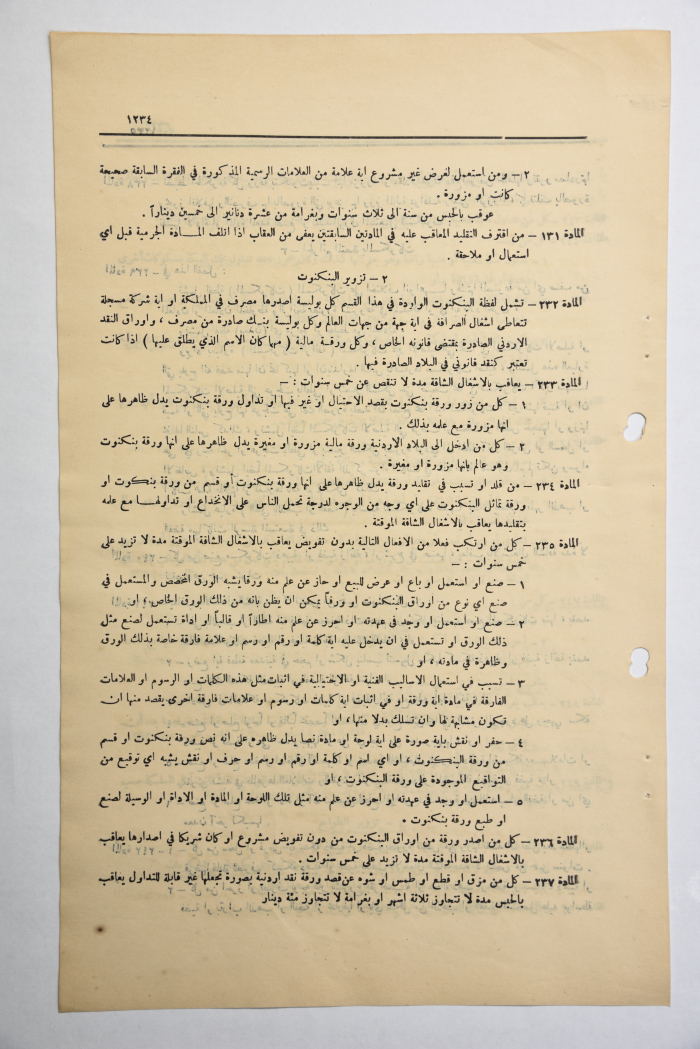 ١٢٣٤
٢ – ومن استعمل لغرض غير مشروع اية علامة من العلامات الرسمية المذكورة في الفقرة السابقة صحيحة
كانت او مزورة .
عوقب بالحبس من سنة الى ثلاث سنوات وبغرامة من عشرة دنانير الى خمسين ديناراً .
المادة ١٣١ – من اقترف التقليد المعاقب عليه في المادتين السابقتين يعفى من العقاب اذا اتلف المادة الجرمية قبل اي
استعمال او ملاحقة .
٢ – تزوير البنكنوت
المادة ٢٣٢ – تشمل لفظة البنكنوت الواردة في هذا القسم كل بوليسة اصدرها مصرف في المملكة او اية شركة مسجلة
تتعاطى اشغال الصرافة في اية جهة من جهات العالم وكل بوليسة بنك صادرة من مصرف ، واوراق النقد
الاردني الصادرة بمقتضى قانونه الخاص ، وكل ورقة مالية ( مهما كان الاسم الذي يطلق عليها ) اذا كانت
تعتبر كنقد قانوني في البلاد الصادرة فيها .
المادة ٢٣٣ – يعاقب بالاشغال الشاقة مدة لا تنقص عن خمس سنوات : –
١ – كل من زور ورقة بنكنوت بقصد الاحتيال او غير فيها او تداول ورقة بنكنوت يدل ظاهرها على
انها مزورة مع علمه بذلك .
٢ – كل من ادخل الى البلاد الاردنية ورقة مالية مزورة او مغيرة يدل ظاهرها على انها ورقة بنكنوت
وهو عالم بانها مزورة او مغيرة .
المادة ٢٣٤ – من قلد او تسبب في تقليد ورقة يدل ظاهرها على انها ورقة بنكنوت أو قسم من ورقة بنكوت او
ورقة تماثل البنكنوت على اي وجه من الوجوه لدرجة تحمل الناس على الانخداع او تداولها مع علمه
بتقليدها يعاقب بالاشغال الشاقة الموقتة .
المادة ٢٣٥ – كل من ارتكب فعلا من الافعال التالية بدون تفويض يعاقب بالاشغال الشاقة الموقتة مدة لا تزيد على
خمس سنوات : –
١ – صنع او استعمل او باع او عرض للبيع او حاز عن علم منه ورقا يشبه الورق المخصص والمستعمل في
صنع اي نوع من اوراق البنكنوت او ورقاً يمكن ان يظن بانه من ذلك الورق الخاص ، او
٢ – صنع او استعمل او وجد في عهدته او احرز عن علم منه اطاراً او قالباً او اداة تستعمل لصنع مثل
ذلك الورق او تستعمل في ان يدخل عليه اية كلمة او رقم او رسم او علامة فارقة خاصة بذلك الورق
وظاهرة في مادته ، او
٣ – تسبب في استعمال الاساليب الفنية او الاحتيالية في اثبات مثل هذه الكلمات او الرسوم او العلامات
الفارقة في مادة اية ورقة او في اثبات اية كلمات او رسوم او علامات فارقة اخرى يقصد منها ان
تكون مشابهة لها وان تسلك بدلا منها ، او
٤ – حفر او نقش باية صورة على اية لوحة او مادة نصا يدل ظاهره على انه نص ورقة بنكنوت او قسم
من ورقة البنكنوت ، او اي اسم او كلمة او رقم او رسم او حرف او نقش يشبه اي توقيع من
التواقيع الموجودة على ورقة البنكنوت ، او
٥ – استعمل او وجد في عهدته او احرز عن علم منه مثل تلك اللوحة او المادة او الاداة او الوسيلة لصنع
او طبع ورقة بنكنوت .
المادة ٢٣٦ – كل من اصدر ورقة من اوراق البنكنوت من دون تفويض مشروع او كان شريكا في اصدارها يعاقب
بالاشغال الشاقة الموقتة مدة لا تزيد على خمس سنوات .
المادة ٢٣٧ – كل من مزق او قطع او طمس او شوه عن قصد ورقة نقد اردنية بصورة تجعلها غير قابلة للتداول يعاقب
بالحبس مدة لا تتجاوز ثلاثة اشهر او بغرامة لا تتجاوز مئة دينار